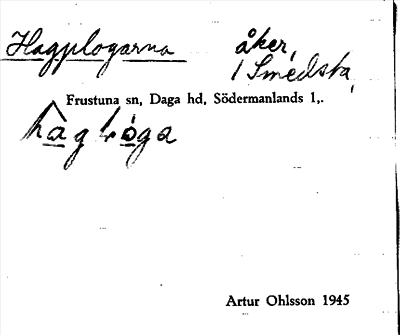 Hagplogarna åker,
/ Smedsta,
Frustuna sn, Daga hd, Södermanlands l,.
Artur Ohlsson 1945